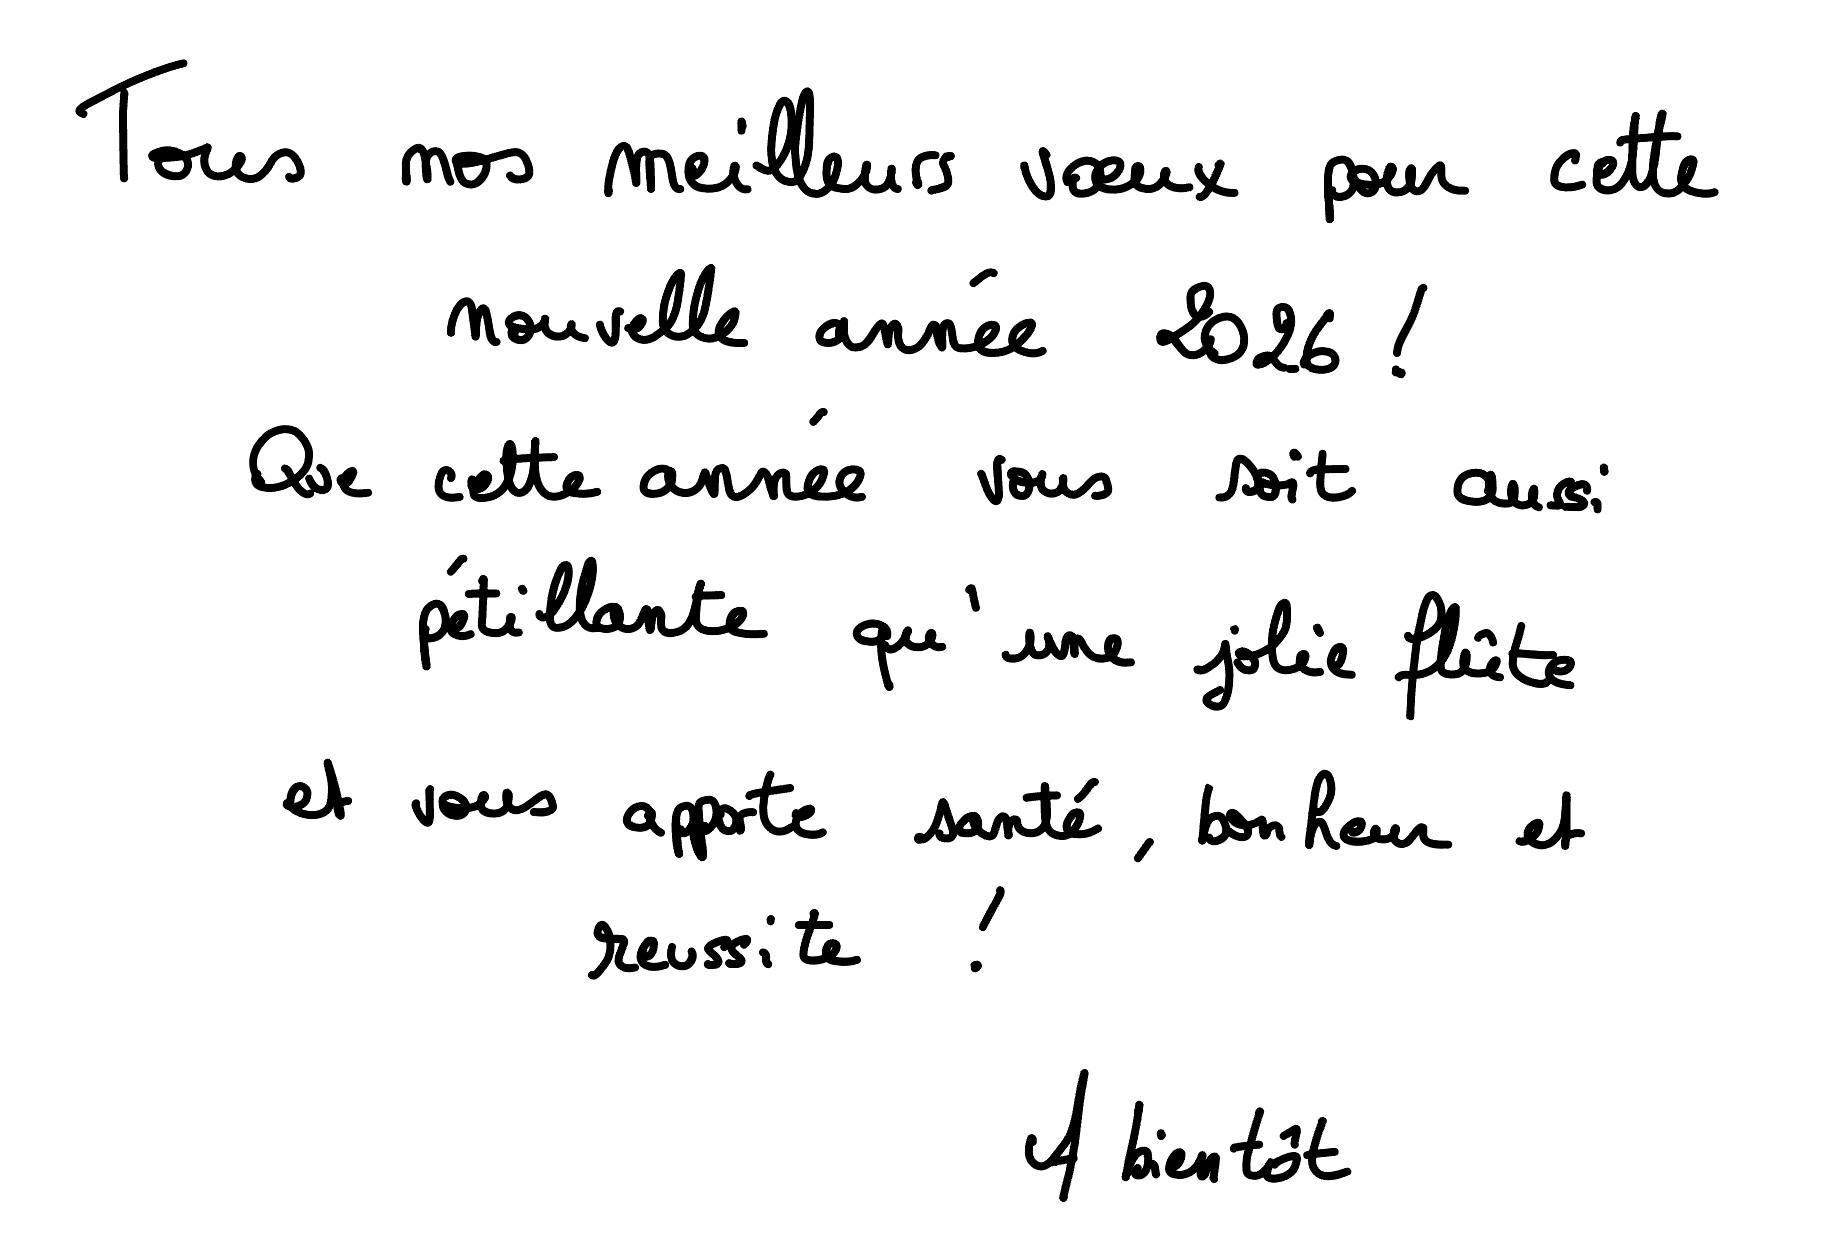 Tous nos meilleurs vœux pour cette
nouvelle année 2026 !
Que cette année vous soit aussi
pétillante qu'une jolie flûte
et vous apporte santé, bonheur et
reussite !
A bientôt